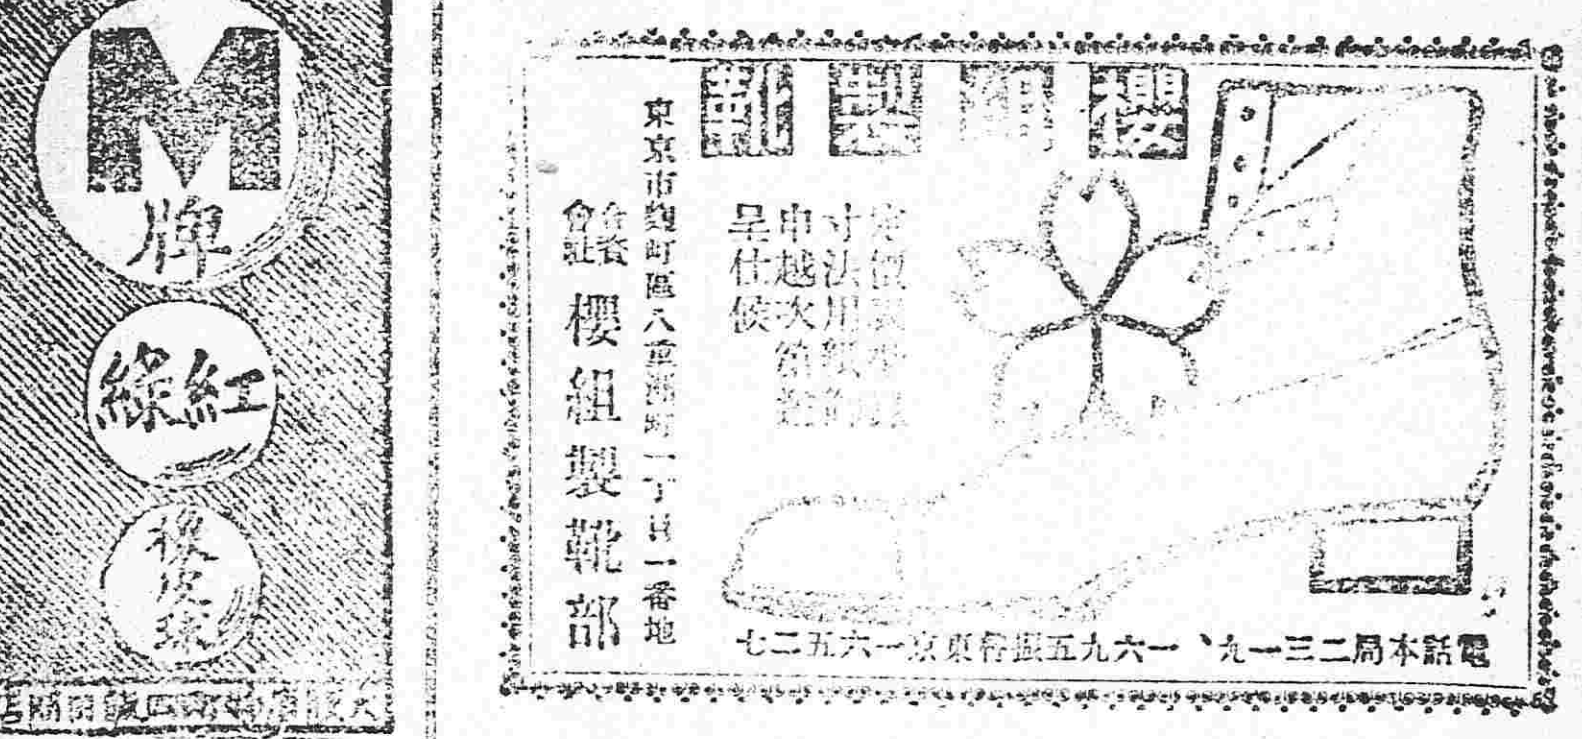 櫻組製靴
定價表並ニ
寸法用紙御
申越次第進
呈仕候
東京市麴町區八重洲町一丁目一番地
合資會社 櫻組製靴部
電話本局二三一九、一六九五振替東京一六五二七
M
牌
紅綠
橡皮球